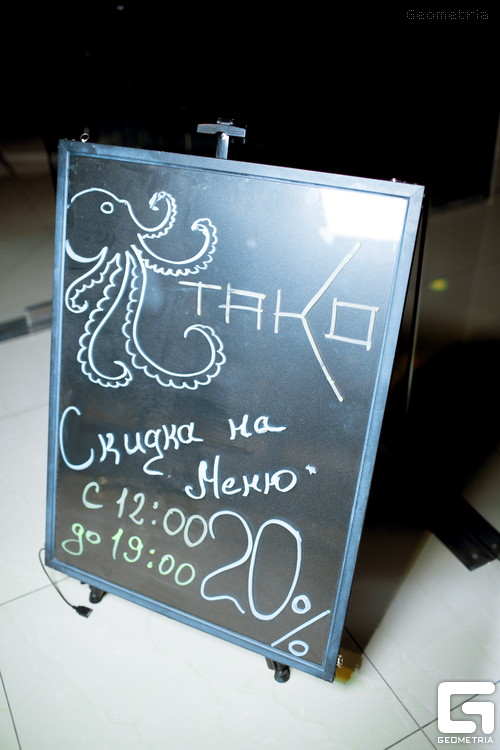 Geometria
ТАКО
Скидка на
Меню*
с 12:00
до 19:00
20%
GEOMETRIA